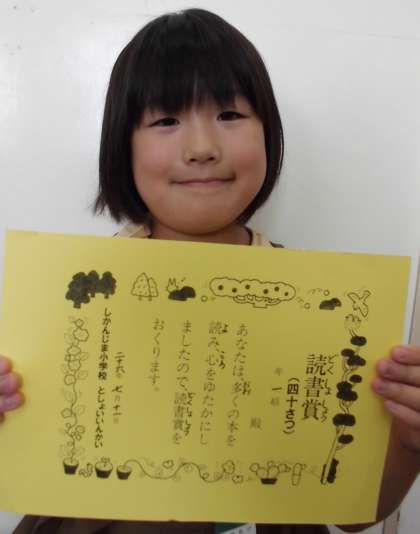 どくしょしょう
読書賞
(四十さつ)
年 一 組
殿
あなたは、多くの本を
読み、心をゆたかにし
ましたので、読書賞を
おくります。
二十九年 七月 十一日
しかんじま小学校 としょいいんかい